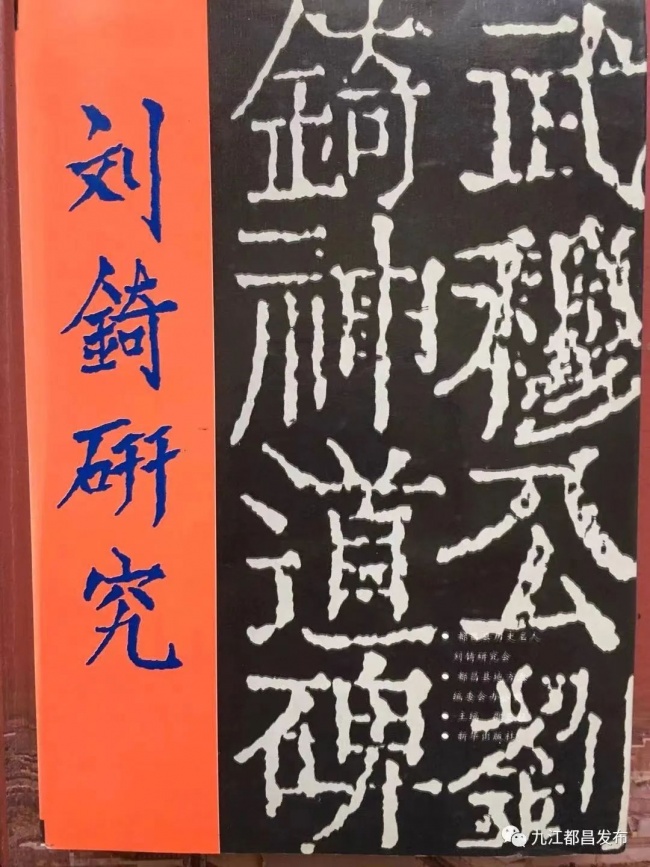 刘錡研究
武穆公劉
錡神道碑
● 都昌县历史名人
刘锜研究会
● 都昌县地方
编委会办
● 主编
● 新华出版社
九江都昌发布